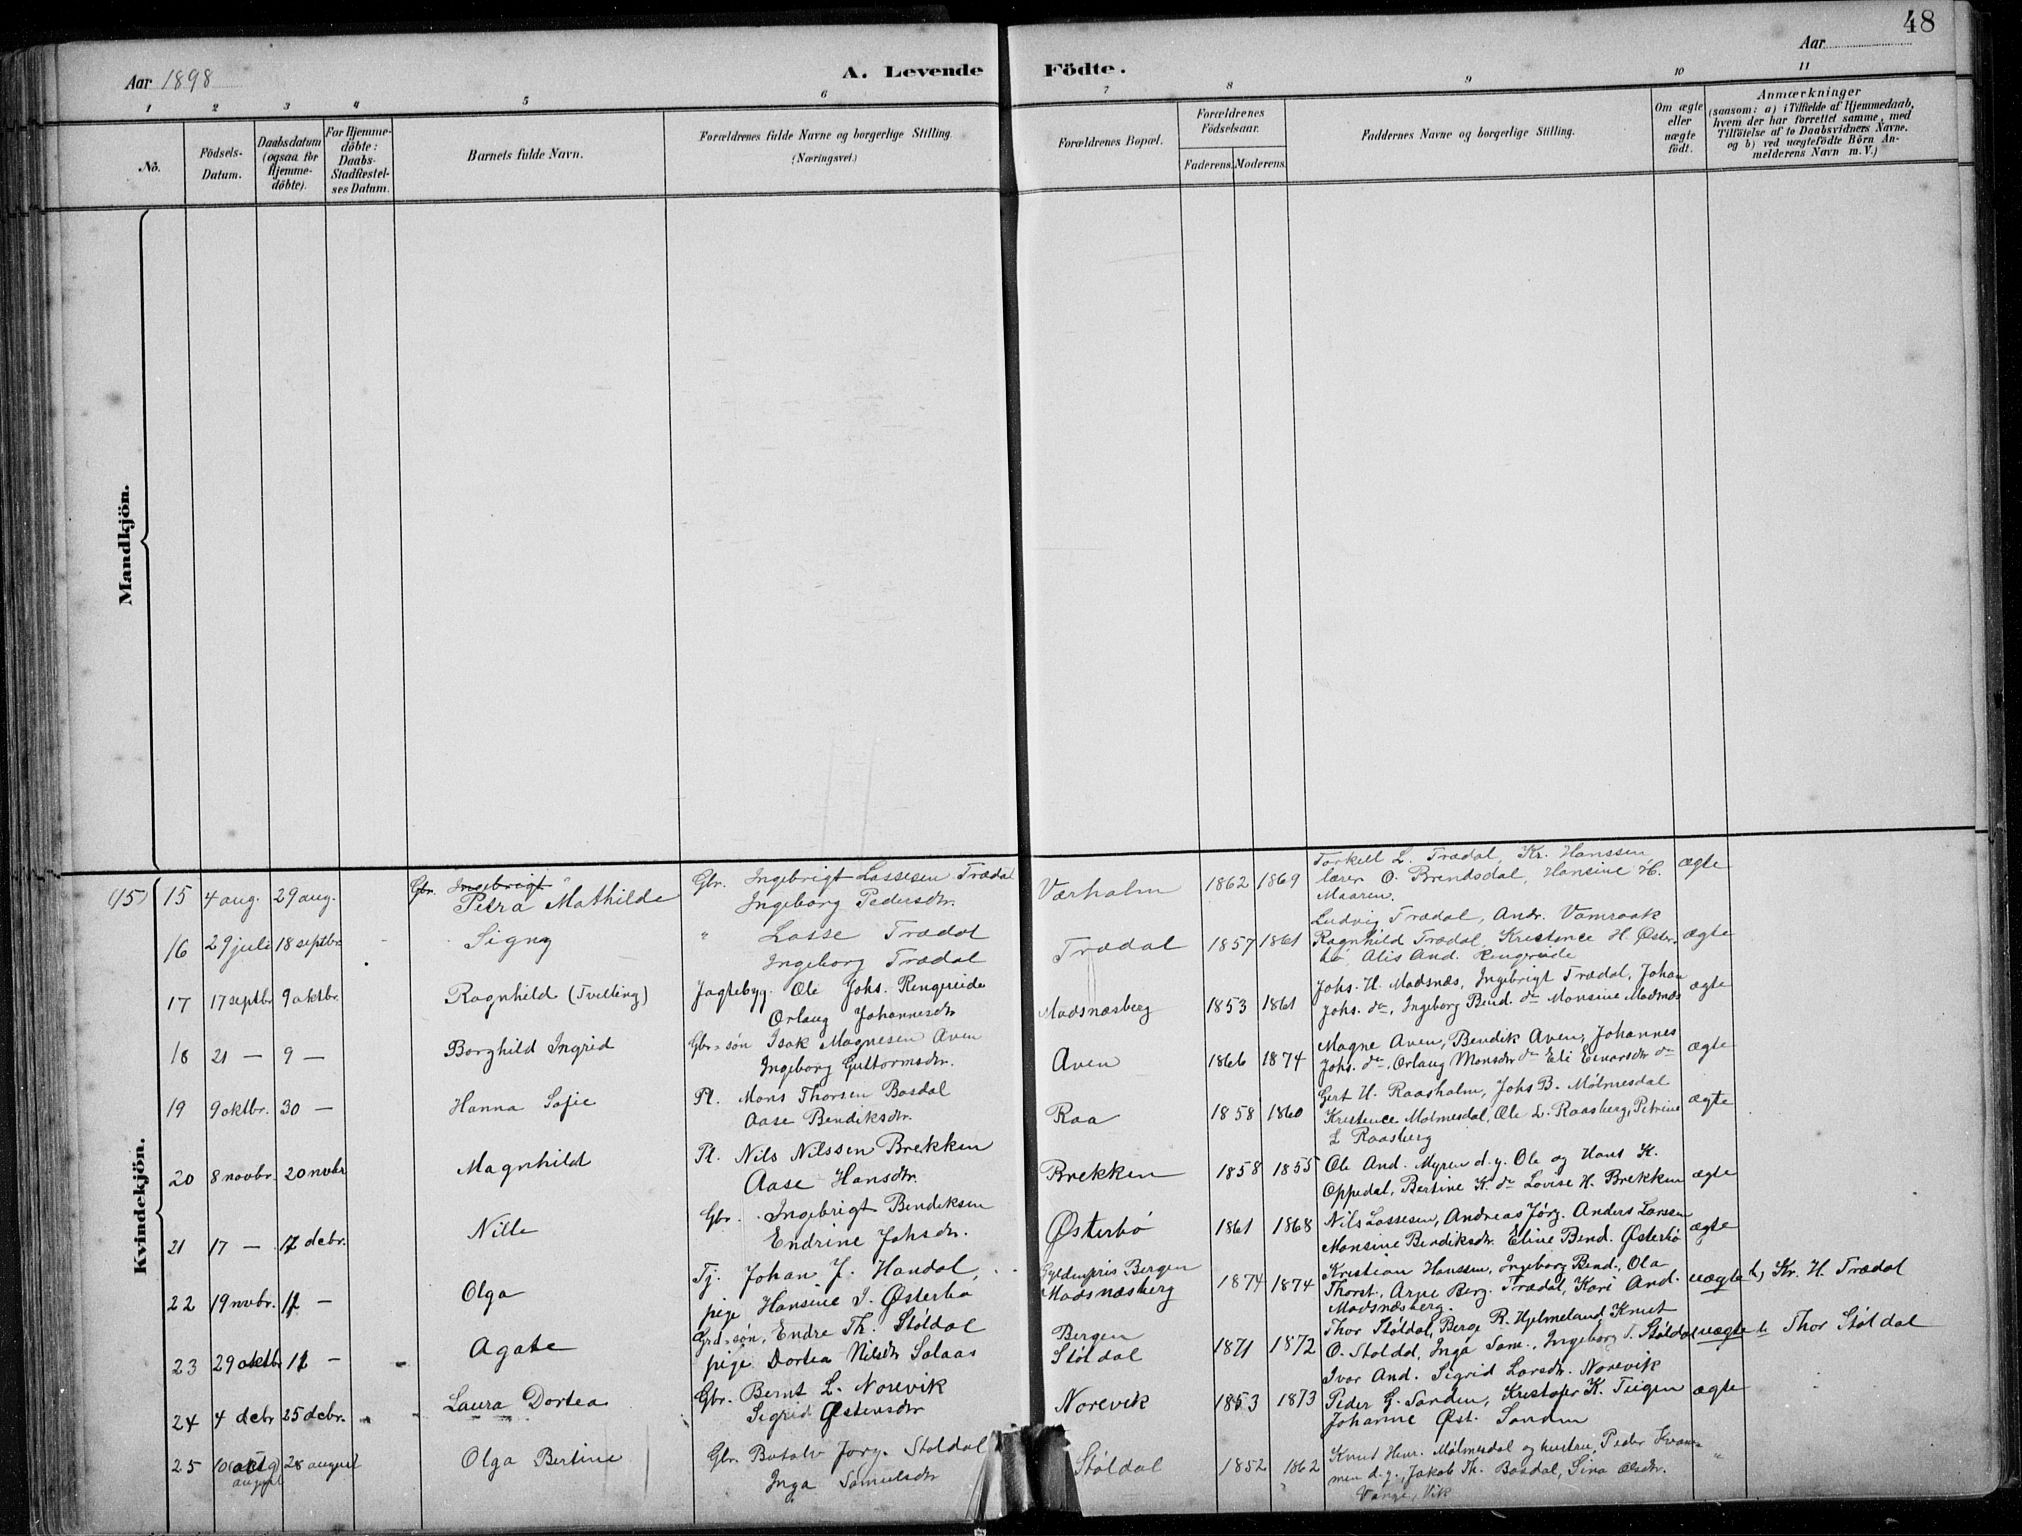 48
Aar 1898
A. Levende Födte.
Aar
1 2 3 4 5 6 7 8 9 10 11
No.
Födsels-Datum.
Daabsdatum (ogsaa for Hjemme-döbte).
For Hjemme-döbte: Daabs-Stadfæstel-ses Datum.
Barnets fulde Navn.
Forældrenes fulde Navne og borgerlige Stilling. (Næringsvei.)
Forældrenes Bopæl.
Forældrenes Födselsaar.
Faderens. Moderens.
Faddernes Navne og borgerlige Stilling.
Om ægte eller uægte födt.
Anmærkninger
(saasom: a) i Tilfælde af Hjemmedaab,
hvem der har forrettet samme, med
Tilföielse af to Daabsvidners Navne,
og b) ved uægtefödte Börn An-
melderens Navn m. V.)
Mandkjön.
Kvindekjön.
(15) 15 4 aug. 29 aug. Gbr. Ingebrigt Petra Mathilde Gbr. Ingebrigt Lassesen Trædal
Ingeborg Pedersdtr. Værholm 1862 1869 Torkell L. Trædal, Kr. Hanssen
lærer O. Brendsdal, Hansine H.
Maaren. ægte
16 29 juli 18 septbr. Signy " Lasse Trædal
Ingeborg Trædal Trædal 1857 1861 Ludvig Trædal, Andr. Vamraak
Ragnhild Trædal, Kristence H. Øster-
bø Alis And. Rengereide ægte
17 17 septbr. 9 oktbr. Ragnhild (Tvilling) Jagtebyg. Ole Johs. Rengereide
Orlaug Johannesdtr Madsnæsberg 1853 1861 Johs. H. Madsnæs, Ingebrigt Trædal, Johan
Johs. do, Ingeborg Bend. do Monsine Madsnæs ægte
18 21 — 9 — Borghild Ingrid Gbr. søn Isak Magnesen Aven
Ingeborg Guttormsdtr. Aven 1866 1874 Magne Aven, Bendik Aven, Johannes
Johs. do, Orlaug Monsdtr do Eli Einarsdtr do ægte
19 9 oktbr. 30 — Hanna Sofie Pl. Mons Thorsen Bosdal
Aase Bendiksdtr. Raa 1858 1860 Gert H. Raasholm, Johs B. Mølmesdal
Kristence Mølmesdal, Ole L. Raasberg, Petrine
L Raasberg ægte
20 8 novbr. 20 novbr Magnhild Pl. Nils Nilssen Brekken
Aase Hansdtr. Brekken 1858 1855 Ole And. Myren d.y. Ole og Hans K.
Oppedal, Bertine K. do Lovise H. Brekken ægte
21 17 — 17 debr. Nille Gbr. Ingebrigt Bendiksen
Endrine Johsdtr. Østerbø 1861 1868 Nils Lassesen, Andreas Jørg. Anders Larssen
Monsine Bendiksdtr. Eline Bend. Østerbø ægte
22 19 novbr. — Olga Tj. Johan J. Handal,
pige Hansine I. Østerbø Gyldenpris Bergen
Madsnæsberg 1874 1874 Kristian Hanssen, Ingeborg Bend., Ola
Thorst., Arne Berg. Trædal, Kari And.
Madsnæsberg. uægte b) Kr. H. Trædal
23 29 oktbr — Agate Grd. søn, Endre Th. Støldal
pige Dortea Nilsdtr Solaas Bergen
Støldal 1871 1872 Thor Støldal, Berge R. Hjelmeland, Knut
O. Støldal, Inga Sam., Ingeborg T. Støldal uægte b Thor Støldal
24 4 debr 25 debr. Laura Dortea Gbr. Bernt L. Norevik
Sigrid Østensdtr Norevik 1853 1873 Ivar And. Sigrid Larsdtr. Norevik
Peder G. Sanden, Kristofer K. Teigen
Johanne Øst. Sanden ægte
25 10 august 28 august Olga Bertine Gbr. Botolv Jørg. Støldal
Inga Samuelsdtr Støldal 1852 1862 Knut Henr. Mølmesdal og hustru, Peder Kvam-
men d.y., Jakob Th. Bosdal, Sina Olsdtr.
Vange, Vik "